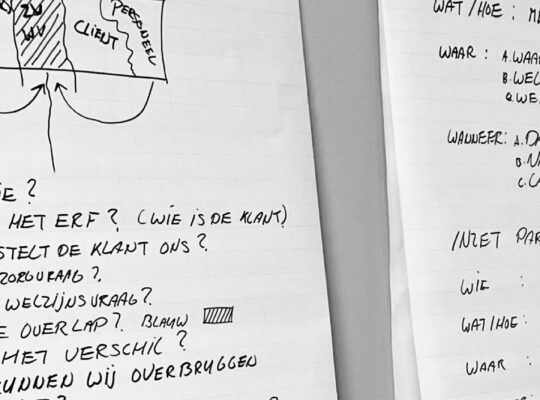 ZW
WV
CLIËNT
PERSONEEL
IE ?
HET ERF ? (WIE IS DE KLANT)
STELT DE KLANT ONS ?
ZORGVRAAG ?
WELZIJNSVRAAG ?
E OVERLAP ? BLAUW
HET VERSCHIL ?
KUNNEN WIJ OVERBRUGGEN
WAT/HOE : ME
WAAR : A. WAAR
B. WEL
C. WE
WANNEER : A. DA
B. NA
C.
INZET PAR
WIE :
WAT/HOE :
WAAR :